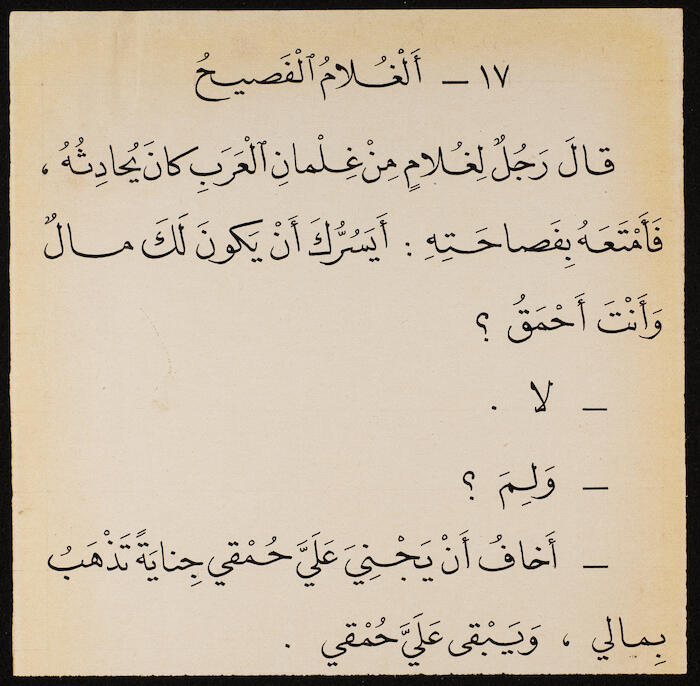 ١٧ – أَلْغُلامُ ٱلْفَصيحُ
قالَ رَجُلٌ لِغُلامٍ مِنْ غِلْمانِ ٱلْعَرَبِ كانَ يُحادِثُهُ ،
فَأَمْتَعَهُ بِفَصاحَتِهِ : أَيَسُرُّكَ أَنْ يَكونَ لَكَ مالٌ
وَأَنْتَ أَحْمَقُ ؟
– لا .
– وَلِمَ ؟
– أَخافُ أَنْ يَجْنِيَ عَلَيَّ حُمْقي جِنايَةً تَذْهَبُ
بِمالي ، وَيَبْقى عَلَيَّ حُمْقي .